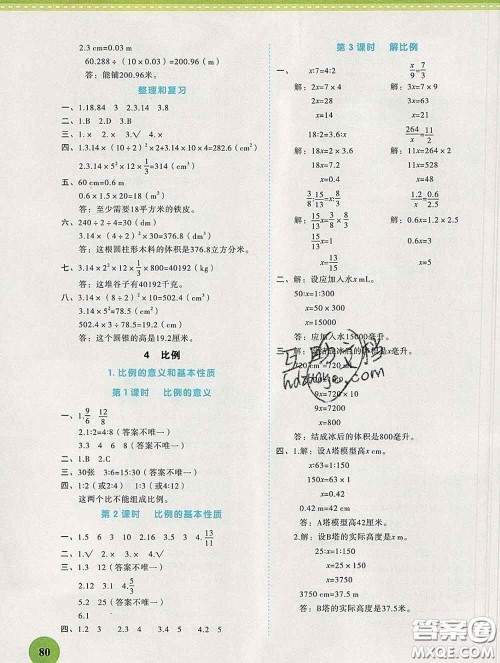 2.3 cm=0.03 m
60.288÷(10×0.03)=200.96(m)
答：能铺200.96米。
整理和复习
一、1.18.84 3 2.4 3.9 4.8
二、1.B 2.D 3.B
三、1.× 2.× 3.× 4.√
四、1.3.14×(10÷2)²×2+3.14×10×4=282.6(cm²)
2.3.14×5²×12×1/3=314(cm³)
五、60 cm=0.6 m
0.6×1.5×20=18(m²)
答：至少需要18平方米的铁皮。
六、240÷2÷4=30(dm)
3.14×(4÷2)²×30=376.8(dm³)
答：这根圆柱形木料的体积是376.8立方分米。
七、3.14×2²×12×1/3×800=40192(kg)
答：这堆谷子有40192千克。
八、3.14×(8÷2)²×10=502.4(cm³)
502.4×3÷78.5=19.2(cm)
答：这个圆锥的高是19.2厘米。
4 比例
1.比例的意义和基本性质
第1课时 比例的意义
一、1.9/6 12/8
2.1:2=4:8(答案不唯一)
3.2 1 4 2(答案不唯一)
二、1.B 2.C
三、30张 3:6=15:30(答案不唯一)
四、1:2(或2:4) 1:3(或2:6)
这两个比不能组成比例。
第2课时 比例的基本性质
一、1.5 6 3 10 2.16 3.5 4.13/11
二、1.√ 2.× 3.√
三、1.3 2 6(答案不唯一)
2.12 3 5(答案不唯一)
3.2 25(答案不唯一)
6.1
四、1.2 15 5 18 2.9 5(答案不唯一)
80
第3课时 解比例
一、 x:7=4:2 x/9=7/3
解：2x=7×4 解：3x=7×9
2x=28 3x=63
x=14 x=21
18:2=3.6:x 264/x=11/2
解：18x=2×3.6 解：11x=264×2
18x=7.2 11x=528
x=0.4 x=48
3/15:3/13=x:3/8 1.2/x=0.6/2.5
解：3/15x=3/13×3/8 解：0.6x=1.2×2.5
0.6x=3
x=5
二、解：设应加入水x mL。
50:x=1:300
x=50×300
x=15000
答：应加入水15000毫升。
9x=720×10
9x=7200
x=800
答：结成冰后的体积是800毫升。
四、1.解：设A塔模型高x cm。
x:63=1:150
150x=6300
x=42
答：A塔模型高42厘米。
2.解：设B塔的实际高度是x m。
25:x=1:150
x=25×150
x=3750
3750 cm=37.5 m
答：B塔的实际高度是37.5米。
答案圈
MXQE.COM